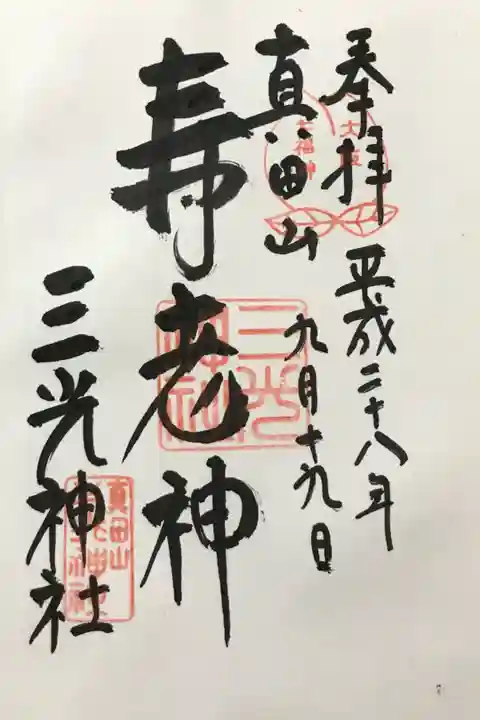 奉拝
平成二十八年
九月十九日
真田山
寿老神
三光神社
大阪
七福神
三光
神社
真田山
三光神社